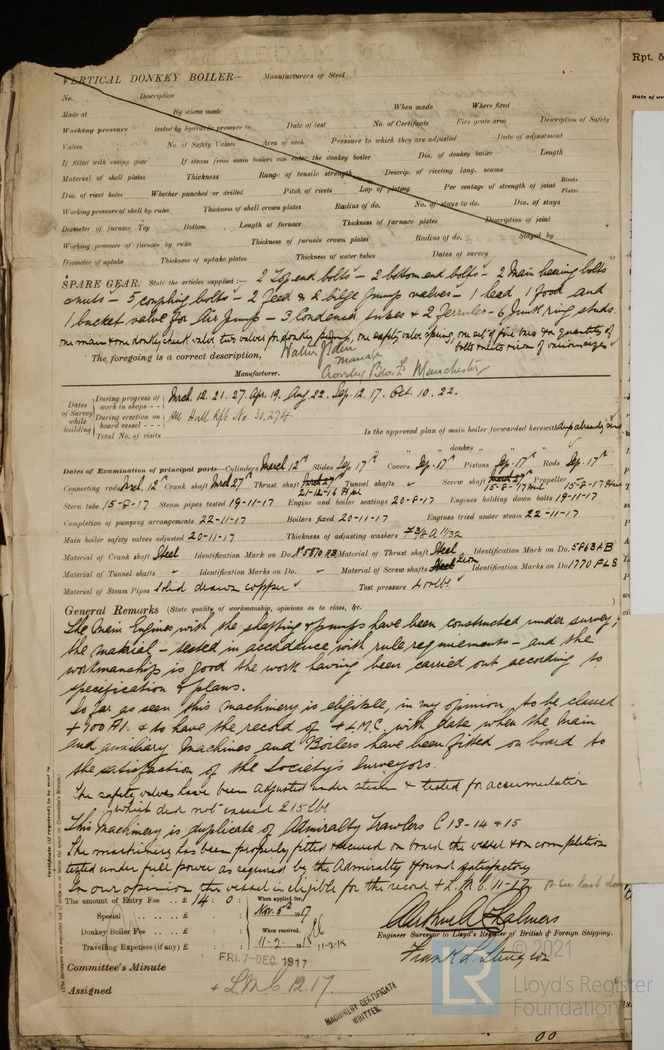 VERTICAL DONKEY BOILER— Manufacturers of Steel
No. Description
Made at By whom made When made Where fixed
Working pressure tested by hydraulic pressure to Date of test No. of Certificate Fire grate area Description of Safety
Valves No. of Safety Valves Area of each Pressure to which they are adjusted Date of adjustment
If fitted with easing gear If steam from main boilers can enter the donkey boiler Dia. of donkey boiler Length
Material of shell plates Thickness Range of tensile strength Descrip. of riveting long. seams
Dia. of rivet holes Whether punched or drilled Pitch of rivets Lap of plating Per centage of strength of joint Rivets Plates
Working pressure of shell by rules Thickness of shell crown plates Radius of do. No. of stays to do. Dia. of stays
Diameter of furnace Top Bottom Length of furnace Thickness of furnace plates Description of joint
Working pressure of furnace by rules Thickness of furnace crown plates Radius of do. Stayed by
Diameter of uptake Thickness of uptake plates Thickness of water tubes Dates of survey
SPARE GEAR. State the articles supplied:— 2 Top end bolts – 2 bottom end bolts – 2 Main bearing bolts
& nuts – 5 coupling bolts – 2 Feed & 2 bilge pump valves – 1 head 1 foot and
1 bucket valve for Air Pump – 3 Condenser tubes & 2 Ferrules – 6 Junk ring studs.
one main & one donkey check valve two valves for donkey pump, one safety valve spring, one set of fire bars & a quantity of
bolts nuts
The foregoing is a correct description,
Manager
Crossley Bros Ld Manchester
Manufacturer.
Dates of Survey while building
During progress of work in shops - - March 12. 21. 27. Apr. 19. Aug 22. Sep. 12. 17. Oct. 10. 22.
During erection on board vessel - - - Hull Rpt No. 30,274
Total No. of visits
Is the approved plan of main boiler forwarded herewith already
" " donkey " " "
Dates of Examination of principal parts—Cylinders March 12th Slides Sep. 17th Covers Sep. 17th Pistons Sep. 17th Rods Sep. 17th
Connecting rods March 12th Crank shaft March 27th Thrust shaft March 27th 21-12-16 Tunnel shafts " Screw shaft March 27th 15-8-17 Propeller 15-8-17
Stern tube 15-8-17 Steam pipes tested 19-11-17 Engine and boiler seatings 20-8-17 Engines holding down bolts 19-11-17
Completion of pumping arrangements 22-11-17 Boilers fixed 20-11-17 Engines tried under steam 22-11-17
Main boiler safety valves adjusted 20-11-17 Thickness of adjusting washers F 3/8 A 11/32
Material of Crank shaft Steel Identification Mark on Do. No 5870 AB Material of Thrust shaft Steel Identification Marks on Do. 5863 AB
Material of Tunnel shafts " Identification Marks on Do. " Material of Screw shafts Iron Identification Marks on Do. 1770 FLS
Material of Steam Pipes Solid drawn copper Test pressure 400 lbs.
General Remarks (State quality of workmanship, opinions as to class, &c.
The Main Engines with the shafting & pumps have been constructed under survey;
the material – tested in accordance with rule requirements – and the
workmanship is good the work having been carried out according to
specification & plans.
So far as seen this machinery is eligible, in my opinion, to be classed
+ 100 A1. & to have the record of + L.M.C. with date when the Main
and auxiliary Machines and Boilers have been fitted on board to
the satisfaction of the Society's Surveyors.
The safety valves have been adjusted under steam & tested for accumulation
which did not exceed 215 lbs
This Machinery is duplicate of Admiralty Trawlers C 13-14 & 15
The machinery has been properly fitted & secured on board the vessel & on completion
tested under full power as required by the Admiralty & found satisfactory
In our opinion the vessel is eligible for the record + L.M.C. 11-17.
The amount of Entry Fee .. £ 14 : 0 : When applied for,
Special .. .. £ : : Nov. 5th 1917
Donkey Boiler Fee .. .. £ : : When received,
Travelling Expenses (if any) £ : : 11-2-1918 11-2-18
Arthur A Chalmers
Engineer Surveyor to Lloyd's Register of British & Foreign Shipping.
Frank L. Sturgeon
Committee's Minute FRI. 7-DEC. 1917
Assigned + L.M.C 12.17.
MACHINERY CERTIFICATE
WRITTEN.
Rpt. 5
© 2021
Lloyd's Register
Foundation
LR